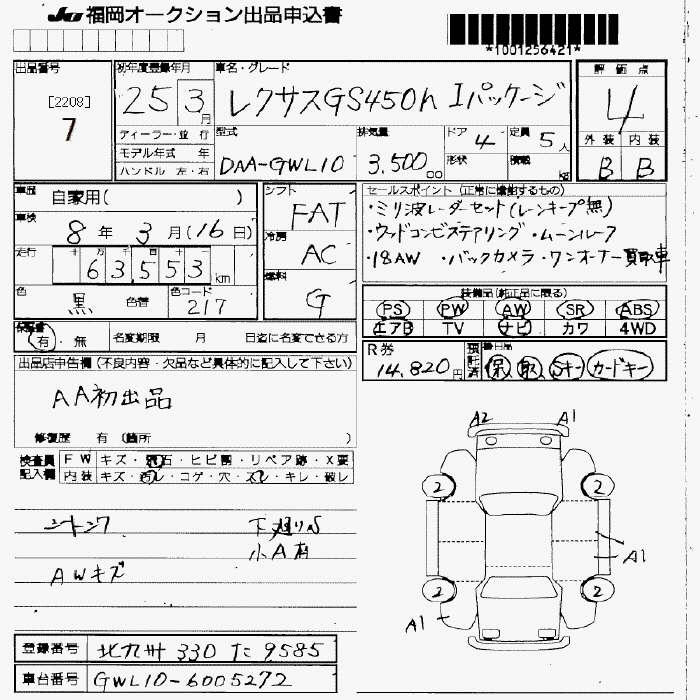 JU 福岡オークション出品申込書
*1001256421*
出品番号
[2208]
7
初年度登録年月
25 3月
車名・グレード
レクサスGS450h Iパッケージ
ディーラー・並 行
モデル年式 年
ハンドル 左・右
型式
DAA-GWL10
排気量
3,500cc
ドア 4
形状
定員 5人
積載 kg
評価点
4
外装 内装
B B
車歴
自家用( )
車検
8年 3月(16日)
走行
十万千百十一
63,553km
色
黒 色替
色コード
217
シフト
FAT
冷房
AC
燃料
G
セールスポイント (正常に機能するもの)
・ミリ波レーダーセット(レーンキープ無)
・ウッドコンビステアリング ・ムーンルーフ
・18AW ・バックカメラ ・ワンオーナー買取車
装備品(純正品に限る)
PS PW AW SR ABS
エアB TV ナビ カワ 4WD
保証書
有・無
名変期限 月 日迄に名変できる方
R券
14,820円
預託済
後日品
保 取 Sキー カードキー
出品店申告欄(不良内容・欠品など具体的に記入して下さい)
AA初出品
修復歴 有(箇所 )
検査員記入欄
FW キズ・飛石・ヒビ割・リペア跡・X要
内装 キズ・汚レ・コゲ・穴・スレ・キレ・破レ
シートシワ 下廻りS
小A有
AWキズ
A2 A1
2 2
A1
2 2
A1
登録番号 北九州 330 た 9585
車台番号 GWL10-6005272